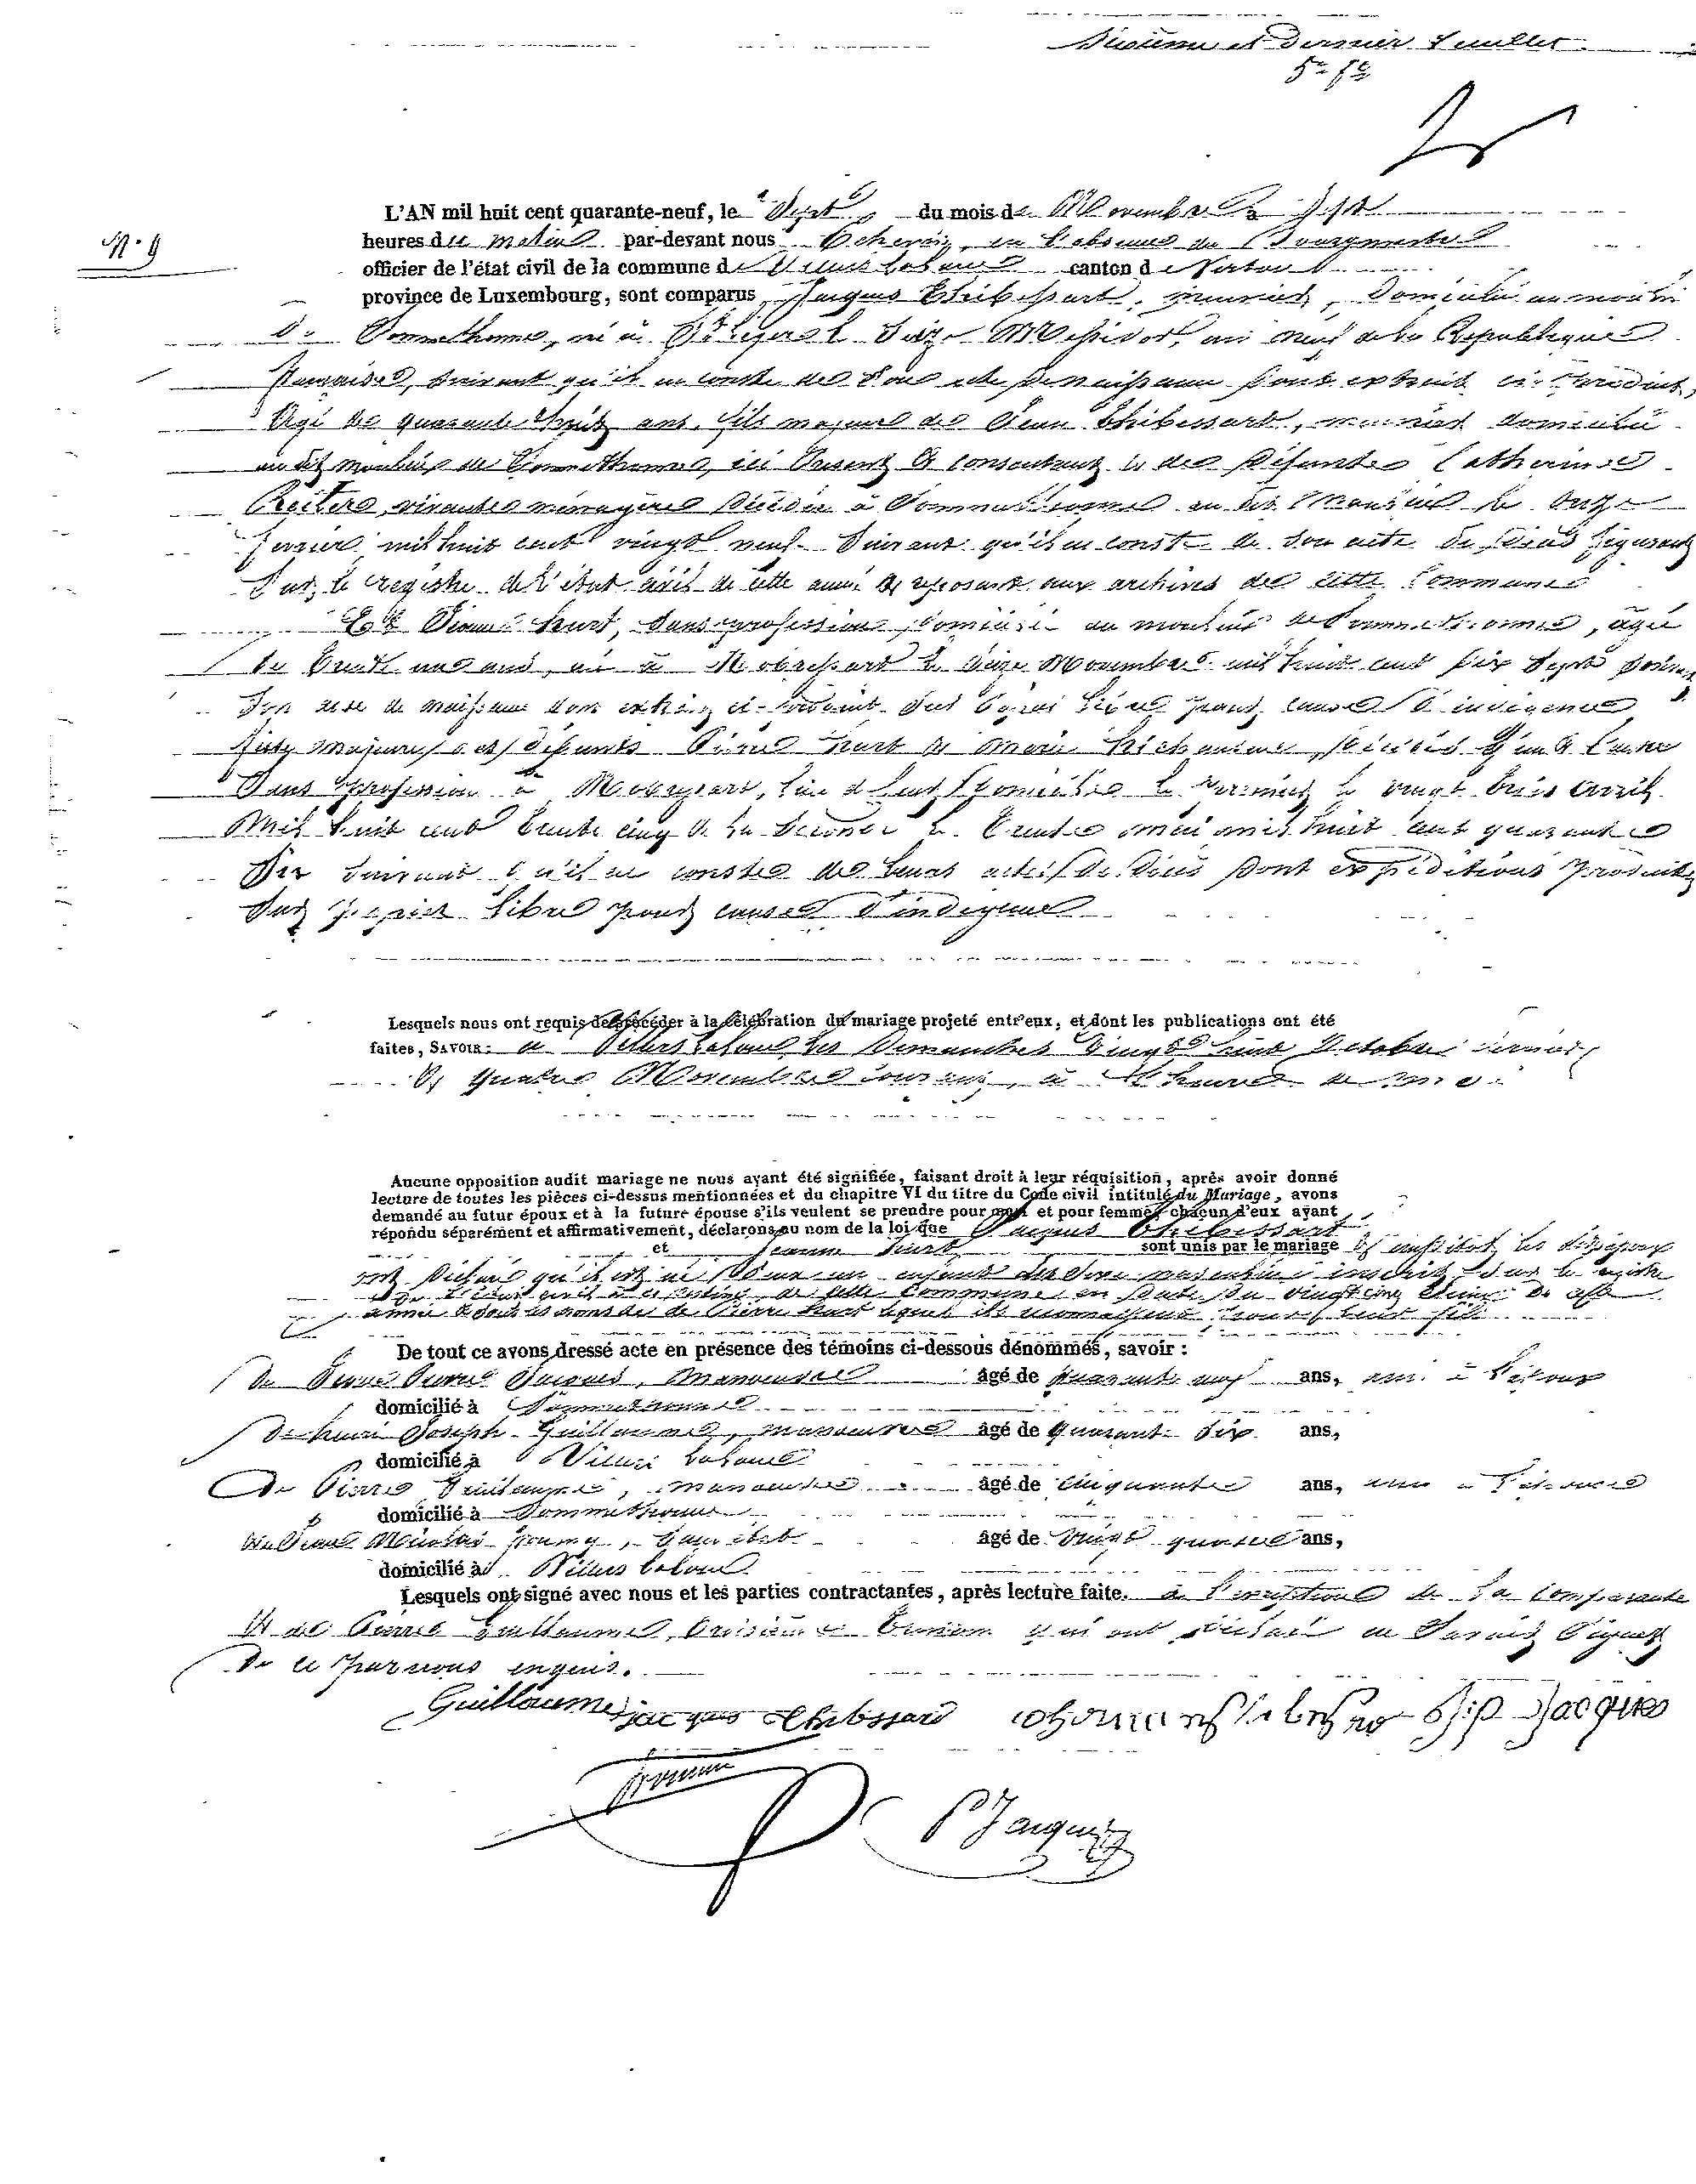 et dernier feuillet
N° 9
L'AN mil huit cent quarante-neuf, le Sept du mois de Novembre à Sept
heures du matin par-devant nous Echevin, en l'absence du Bourgmestre
officier de l'état civil de la commune d canton d
province de Luxembourg, sont comparus Jacques Thibessart, meunier, domicilié au moulin
de Sommethonne, né à St Léger le Seize Messidor, an neuf de la République
française, suivant qu'il en conste de son acte de naissance dont extrait ci-produit,
Agé de quarante huit ans, fils majeur de Jean Thibessart, meunier domicilié
au dit moulin de Sommethonne, ici présent et consentant et de défunte Catherine
vivante ménagère décédée à Sommethonne au dit moulin le onze
février mil huit cent vingt neuf suivant qu'il en conste de son acte de décès figurant
Sur le registre de l'état civil de cette année et reposant aux archives de cette Commune
Et Jeanne hurt, Sans profession, domiciliée au moulin de Sommethonne, âgée
de trente un ans, née à le Seize Novembre mil huit cent dix Sept suivant
Son acte de naissance dont extrait ci-produit Sur papier libre pour cause d'indigence
fille majeure des défunts Pierre hurt et Marie décédés l'un et l'autre
Sans profession à lieu de leur domicile le premier le vingt trois avril
Mil huit cent trente cinq et la seconde le trente mai mil huit cent quarante
Six suivant qu'il en conste de leurs actes de décès dont expéditions produites
Sur papier libre pour cause d'indigence
Lesquels nous ont requis de procéder à la célébration du mariage projeté entr'eux, et dont les publications ont été
faites, SAVOIR: à les Dimanches vingt huit Octobre dernier
et quatre Novembre courant, à heure de
Aucune opposition audit mariage ne nous ayant été signifiée, faisant droit à leur réquisition, après avoir donné
lecture de toutes les pièces ci-dessus mentionnées et du chapitre VI du titre du Code civil intitulé du Mariage, avons
demandé au futur époux et à la future épouse s'ils veulent se prendre pour mari et pour femme, chacun d'eux ayant
répondu séparément et affirmativement, déclarons au nom de la loi que Jacques Thibessart
et Jeanne hurt sont unis par le mariage et aussitôt les dits époux
ont déclaré qu'il est né d'eux un enfant du sexe masculin inscrit sur le registre
de l'état civil de cette Commune en date du vingt cinq de cette
année et sous les noms de Pierre hurt lequel ils reconnaissent pour leur fils
De tout ce avons dressé acte en présence des témoins ci-dessous dénommés, savoir :
de Jean Pierre Jacques, manoeuvre âgé de quarante neuf ans, ami à l'époux
domicilié à Sommethonne
de henri Joseph Guillaume, manoeuvre âgé de quarante Six ans,
domicilié à
de Pierre Guillaume, manoeuvre âgé de cinquante ans, ami à l'épouse
domicilié à Sommethonne
de Jean Nicolas âgé de vingt quatre ans,
domicilié à
Lesquels ont signé avec nous et les parties contractantes, après lecture faite. à l'exception de la comparante
et de Pierre Guillaume, troisième témoin qui ont déclaré ne savoir signer
de ce par nous enquis.
Guillaume jacques thibssard J:P Jacques
P Jacques